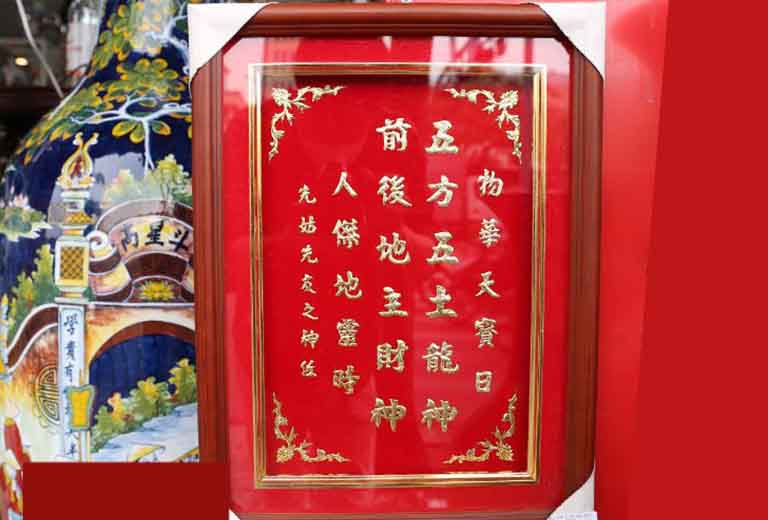 物華天寳日
五方五土龍神
前後地主財神
人傑地靈時
先姑先友之神位
學貴有